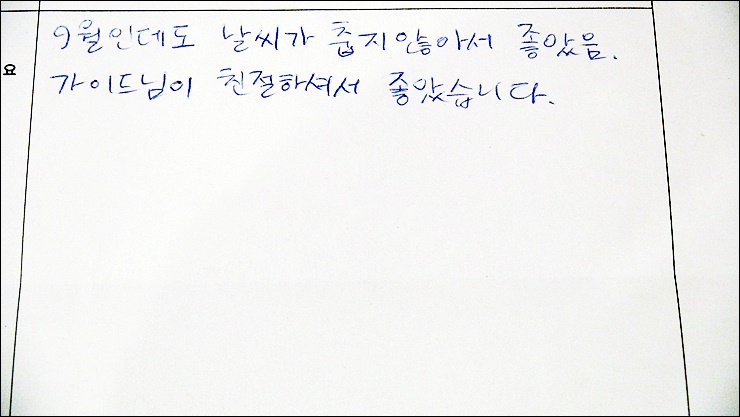 9월인데도 날씨가 춥지않아서 좋았음.
요
가이드님이 친절하셔서 좋았습니다.